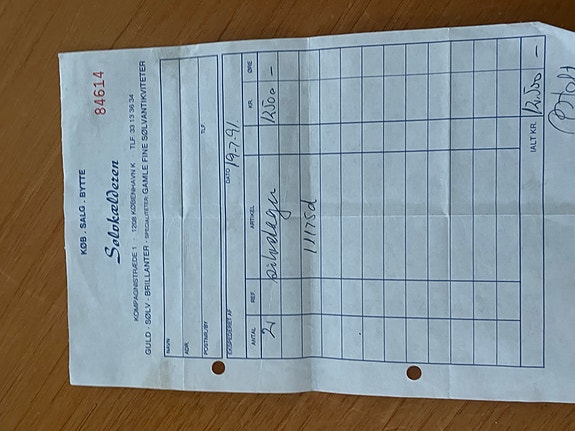 KØB . SALG . BYTTE
84614
Sølvkælderen
KOMPAGNISTRÆDE 1 1208 KØBENHAVN K TLF. 33 13 36 34
GULD - SØLV - BRILLANTER - SPECIALITETER: GAMLE FINE SØLVANTIKVITETER
NAVN
ADR.
POSTNR./BY TLF.
EKSPEDERET AF DATO 19-7-91
ANTAL REF. ARTIKEL KR. ØRE
2 12500 -
IALT KR. 12.500 -